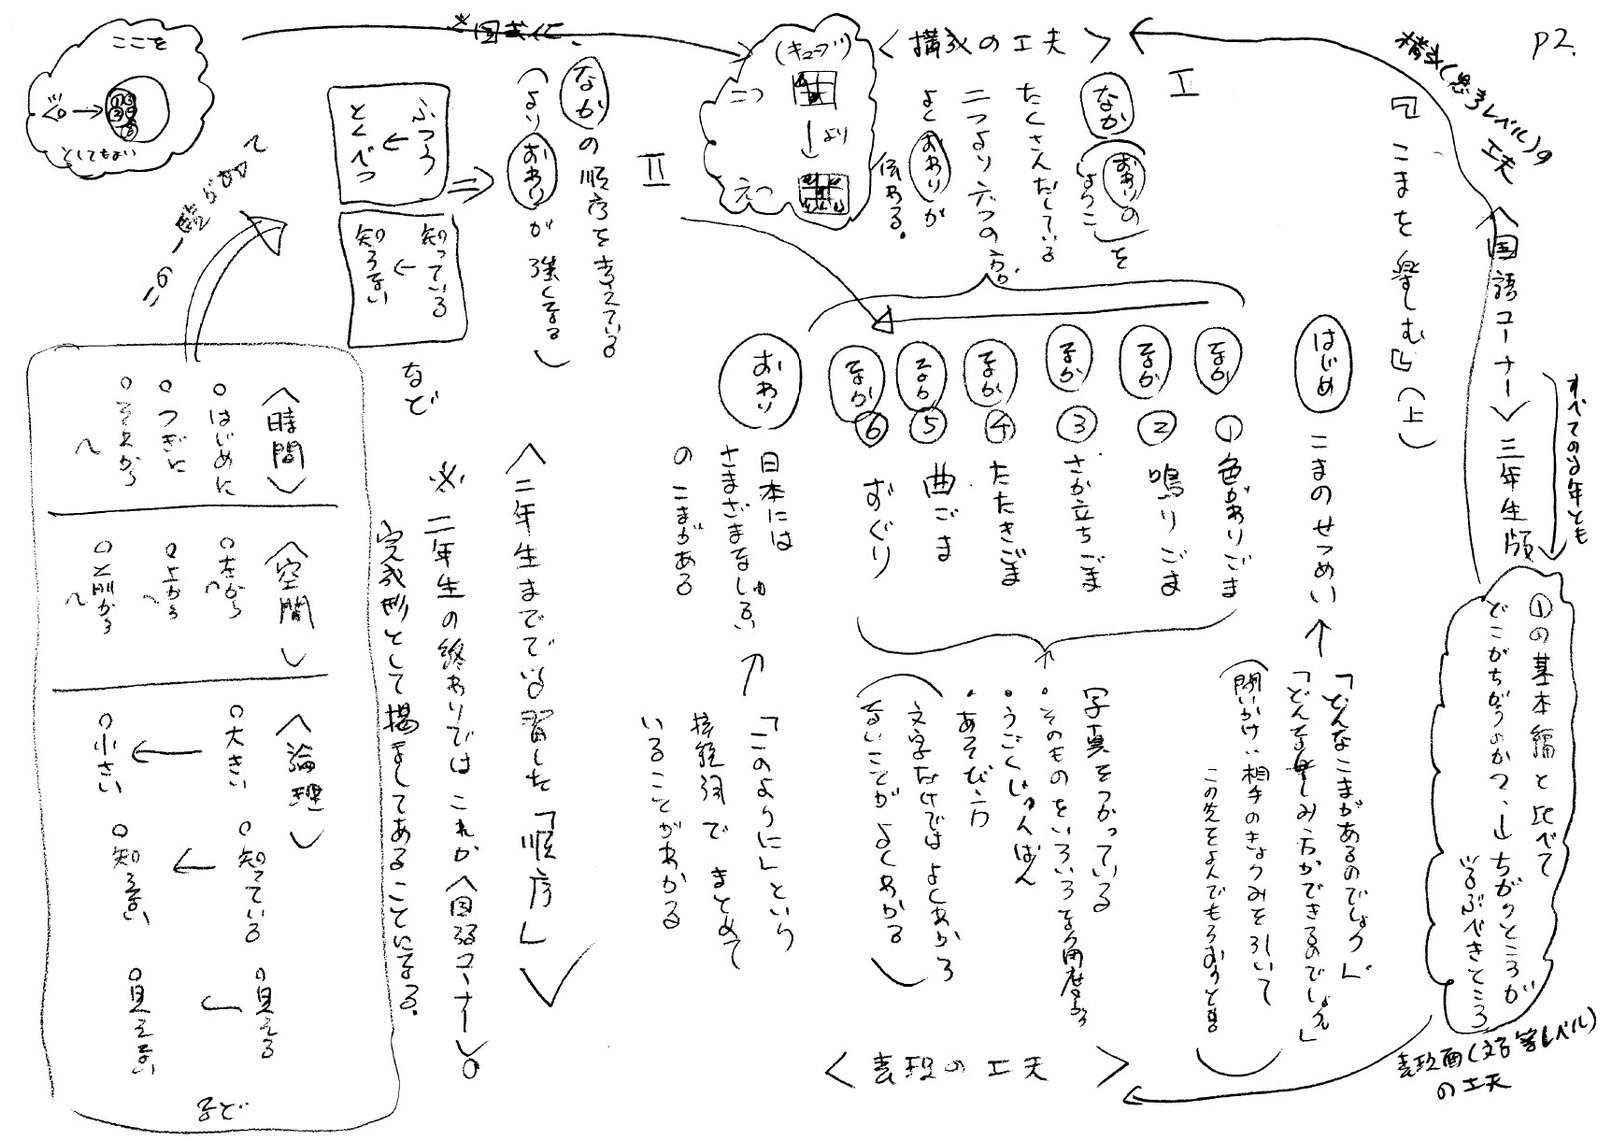 P2.
構成(思考レベル)の
工夫
〈国語コーナー〉三年生版
すべての学年とも
①の基本編と比べて
どこがちがうのかつ、↓ちがうところが
学ぶべきところ
表現面(文字レベル)
の工夫
『こまを楽しむ』(上)
〈構成の工夫〉
I
なか(おわりの
しょうこ)を
たくさんだしている
二つより六つの方が
よくおわりが
伝わる。
(キューブ)
二つ
↓より
六つ
はじめ こまのせつめい
↑
「どんなこまがあるのでしょう」
「どんな楽しみ方ができるのでしょう」
(問いかけ、相手のきょうみを引いて
この先をよんでもらおうとする)
なか ① 色がわりごま
なか ② 鳴りごま
なか ③ さか立ちごま
なか ④ たたきごま
なか ⑤ 曲ごま
なか ⑥ ずぐり
写真をつかっている
・そのものをいろいろな角度から
・うごくじゅんばん
・あそび方
(文字だけではよくわから
ないことがよくわかる)
おわり
日本には
さまざまなしゅるい
のこまがある
←
「このように」という
接続詞でまとめて
いることがわかる
〈表現の工夫〉
II
なかの順序を考えている
(よりおわりが強くなる)
※図式化
ふつう
↓
とくべつ
知っている
↓
知らない
など
ここを
としてもよい
この一覧が
〈二年生までで学習した「順序」〉
※二年生の終わりではこれが〈国語コーナー〉の
完成形として掲示してあることになる。
〈時間〉
○はじめに
○つぎに
○それから
〜
〈空間〉
○左から〜
○上から〜
○前から〜
〈論理〉
○大きい
↓
○小さい
○知っている
↓
○知らない
○見える
↓
○見えない
など